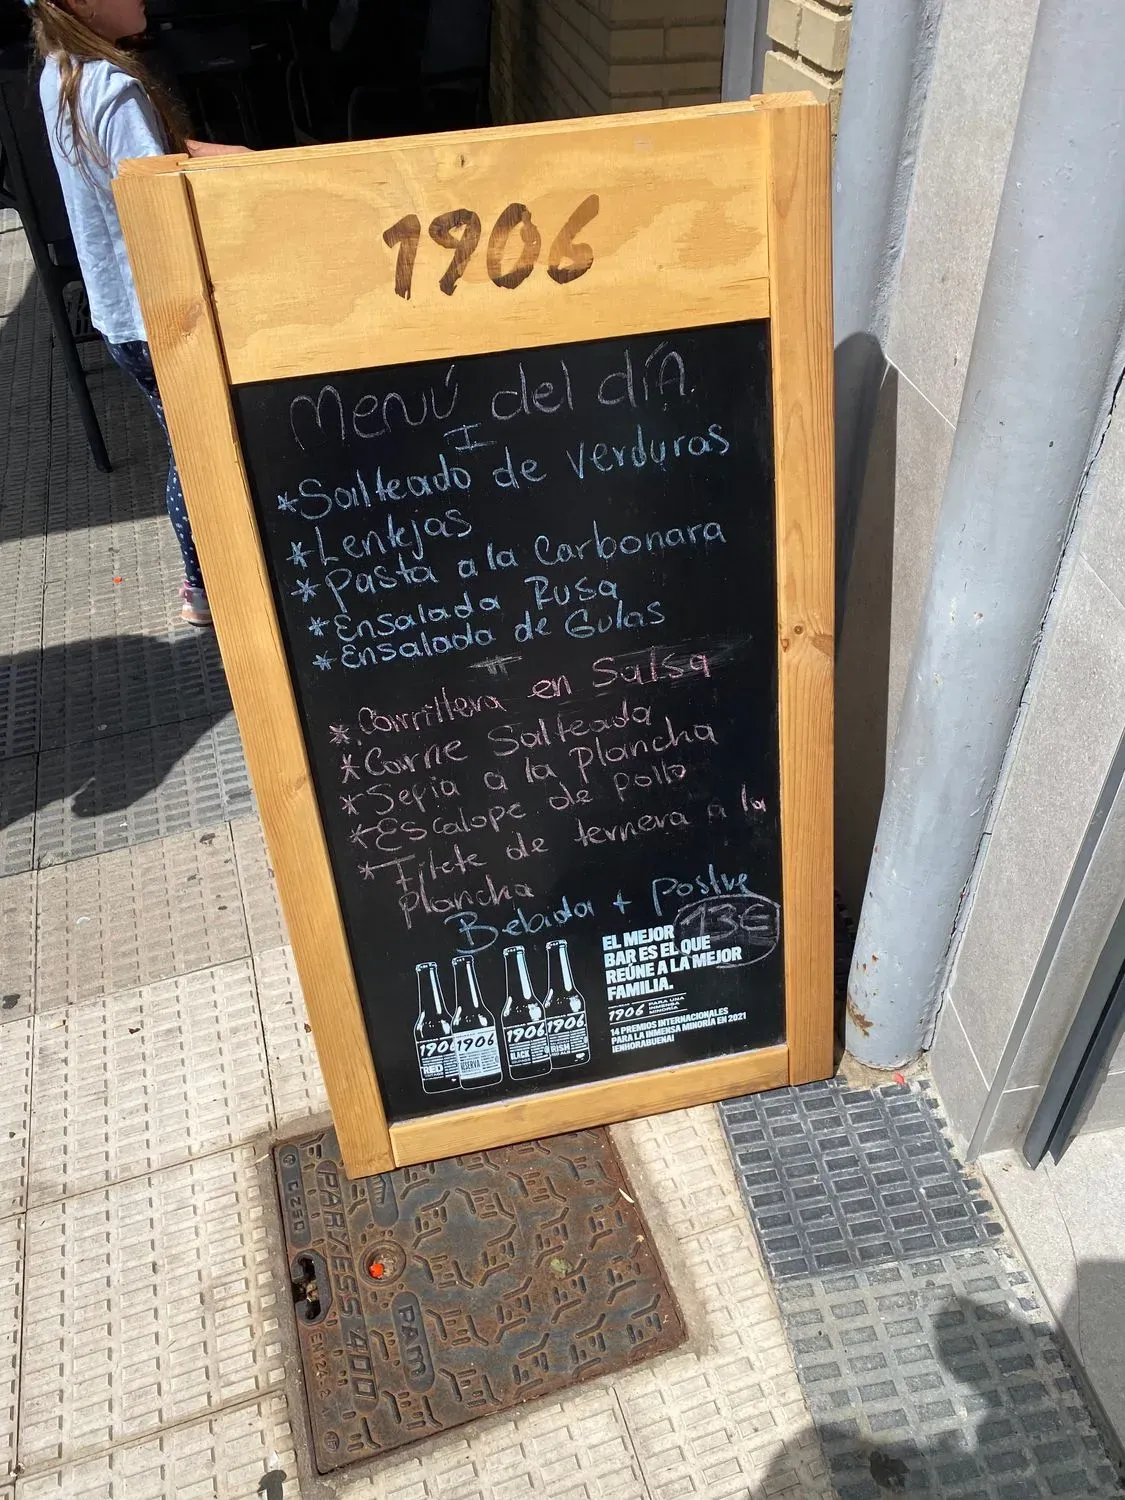 1906
Menú del día
I
*Salteado de verduras
*Lentejas
*Pasta a la Carbonara
*Ensalada Rusa
*Ensalada de Gulas
II
*Carrillera en Salsa
*Carne Salteada
*Sepia a la Plancha
*Escalope de pollo
*Filete de ternera a la
plancha
Bebida + Postre
13€
EL MEJOR
BAR ES EL QUE
REÚNE A LA MEJOR
FAMILIA.
1906 PARA UNA
INMENSA
MINORÍA
14 PREMIOS INTERNACIONALES
PARA LA INMENSA MINORÍA EN 2021
¡ENHORABUENA!
1906 1906 1906 1906
RED RESERVA BLACK IRISH
RED ALE
C250
PAM
PARXESS 400
PAM
EN 124.2